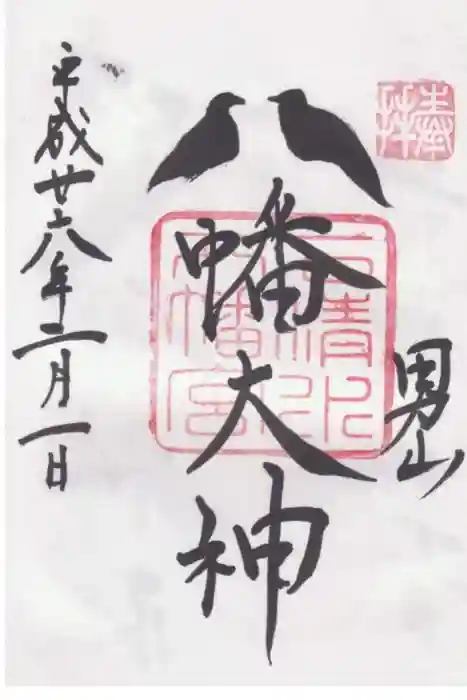 奉拝
男山
八幡大神
石清水八幡宮
平成廿六年二月一日